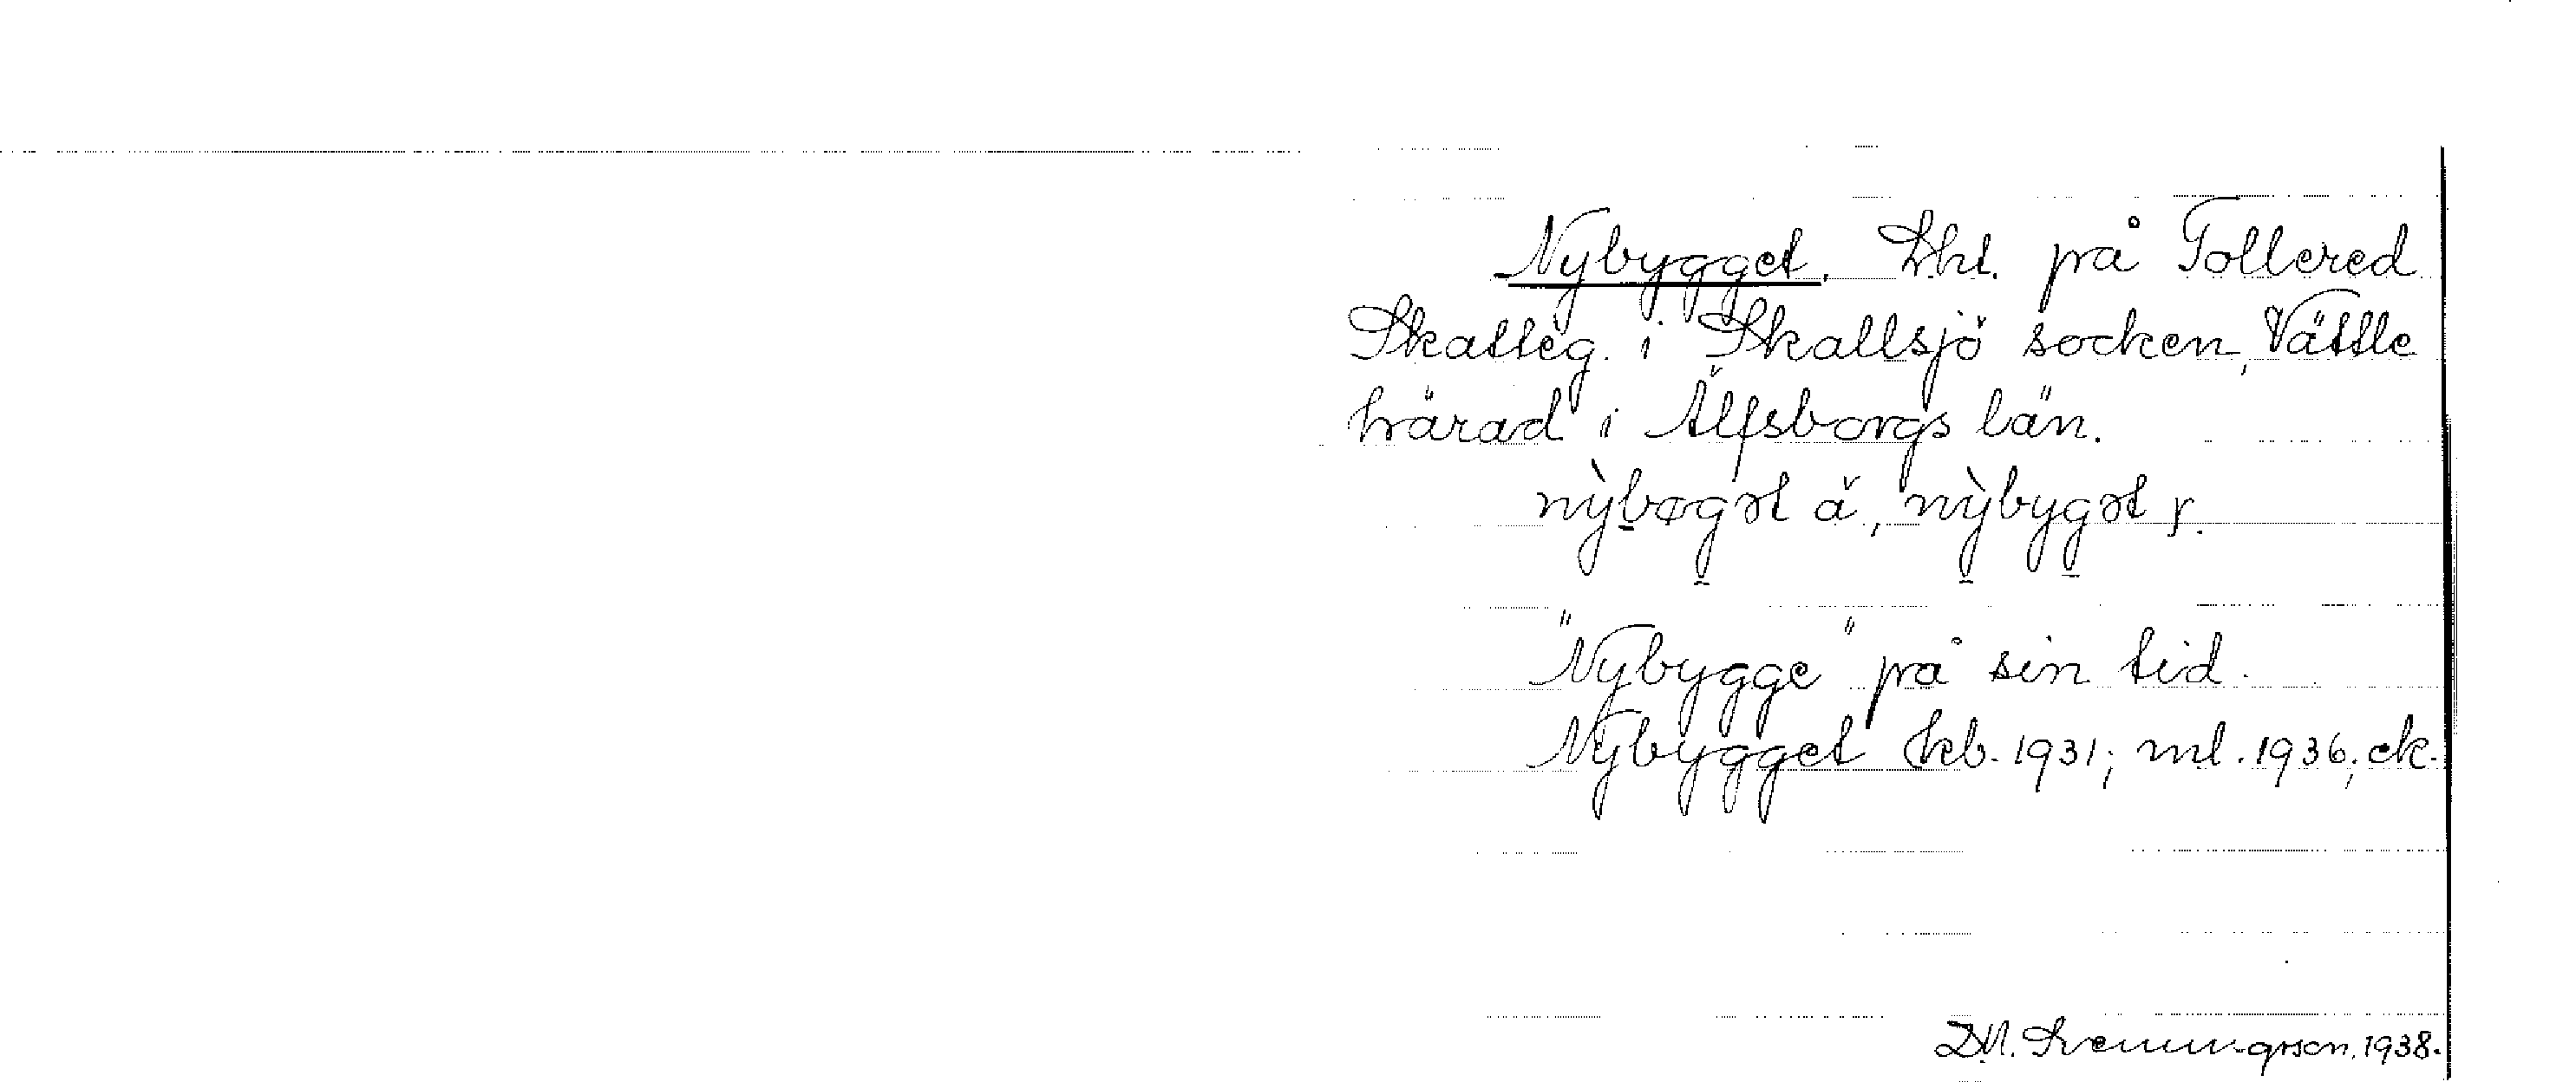 Nybygget. Lht. på Tollered
Skatteg. i Skallsjö socken, Vättle
härad i Älfsborgs län.
nỳbøgət ä, nỳbygət y.
"Nybygge" på sin tid.
Nybygget kb. 1931; ml. 1936; ek.
D.M. Svenningsson. 1938.